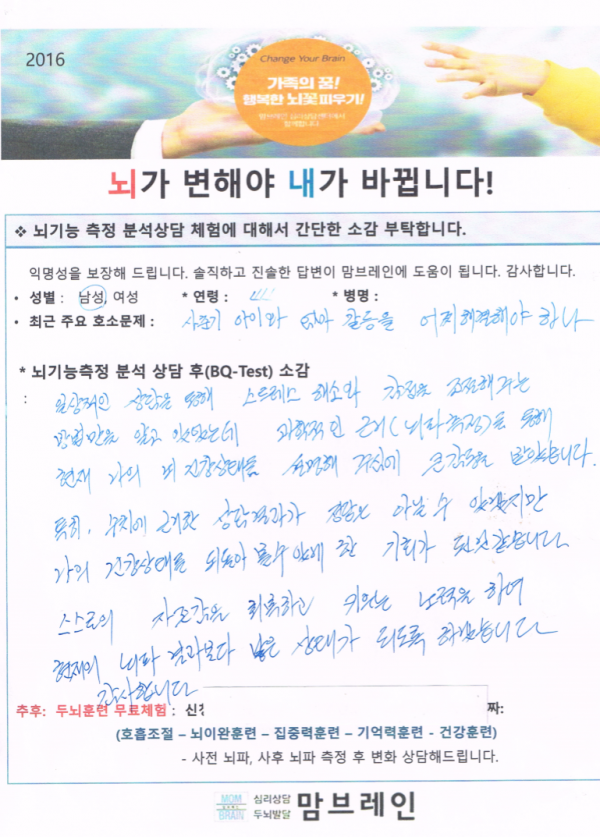 2016
Change Your Brain
가족의 꿈!
행복한 뇌꽃피우기!
맘브레인 심리상담센터에서
함께합니다!
뇌가 변해야 내가 바뀝니다!
❖ 뇌기능 측정 분석상담 체험에 대해서 간단한 소감 부탁합니다.
익명성을 보장해 드립니다. 솔직하고 진솔한 답변이 맘브레인에 도움이 됩니다. 감사합니다.
• 성별 : 남성, 여성 * 연령 : * 병명 :
• 최근 주요 호소문제 : 사춘기 아이와 엄마 갈등을 어찌 해결해야 하나
* 뇌기능측정 분석 상담 후(BQ-Test) 소감
: 일상적인 상담을 통해 스트레스 해소와 감정을 조절해주는
방법만을 알고 있었는데 과학적인 근거(뇌파측정)를 통해
현재 나의 뇌 건강상태를 설명해 주심에 큰 감동을 받았습니다.
특히, 수치에 근거한 상담결과가 정답은 아닐 수 있겠지만
나의 건강상태를 되돌아 볼수 있게 한 기회가 된것 같습니다
스스로의 자존감을 회복하고 키우는 노력을 하여
현재의 뇌파 결과보다 나은 상태가 되도록 하겠습니다
감사합니다
추후: 두뇌훈련 무료체험 : 신청 짜:
(호흡조절 – 뇌이완훈련 – 집중력훈련 – 기억력훈련 - 건강훈련)
- 사전 뇌파, 사후 뇌파 측정 후 변화 상담해드립니다.
MOM
BRAIN
심리상담
두뇌발달
맘브레인